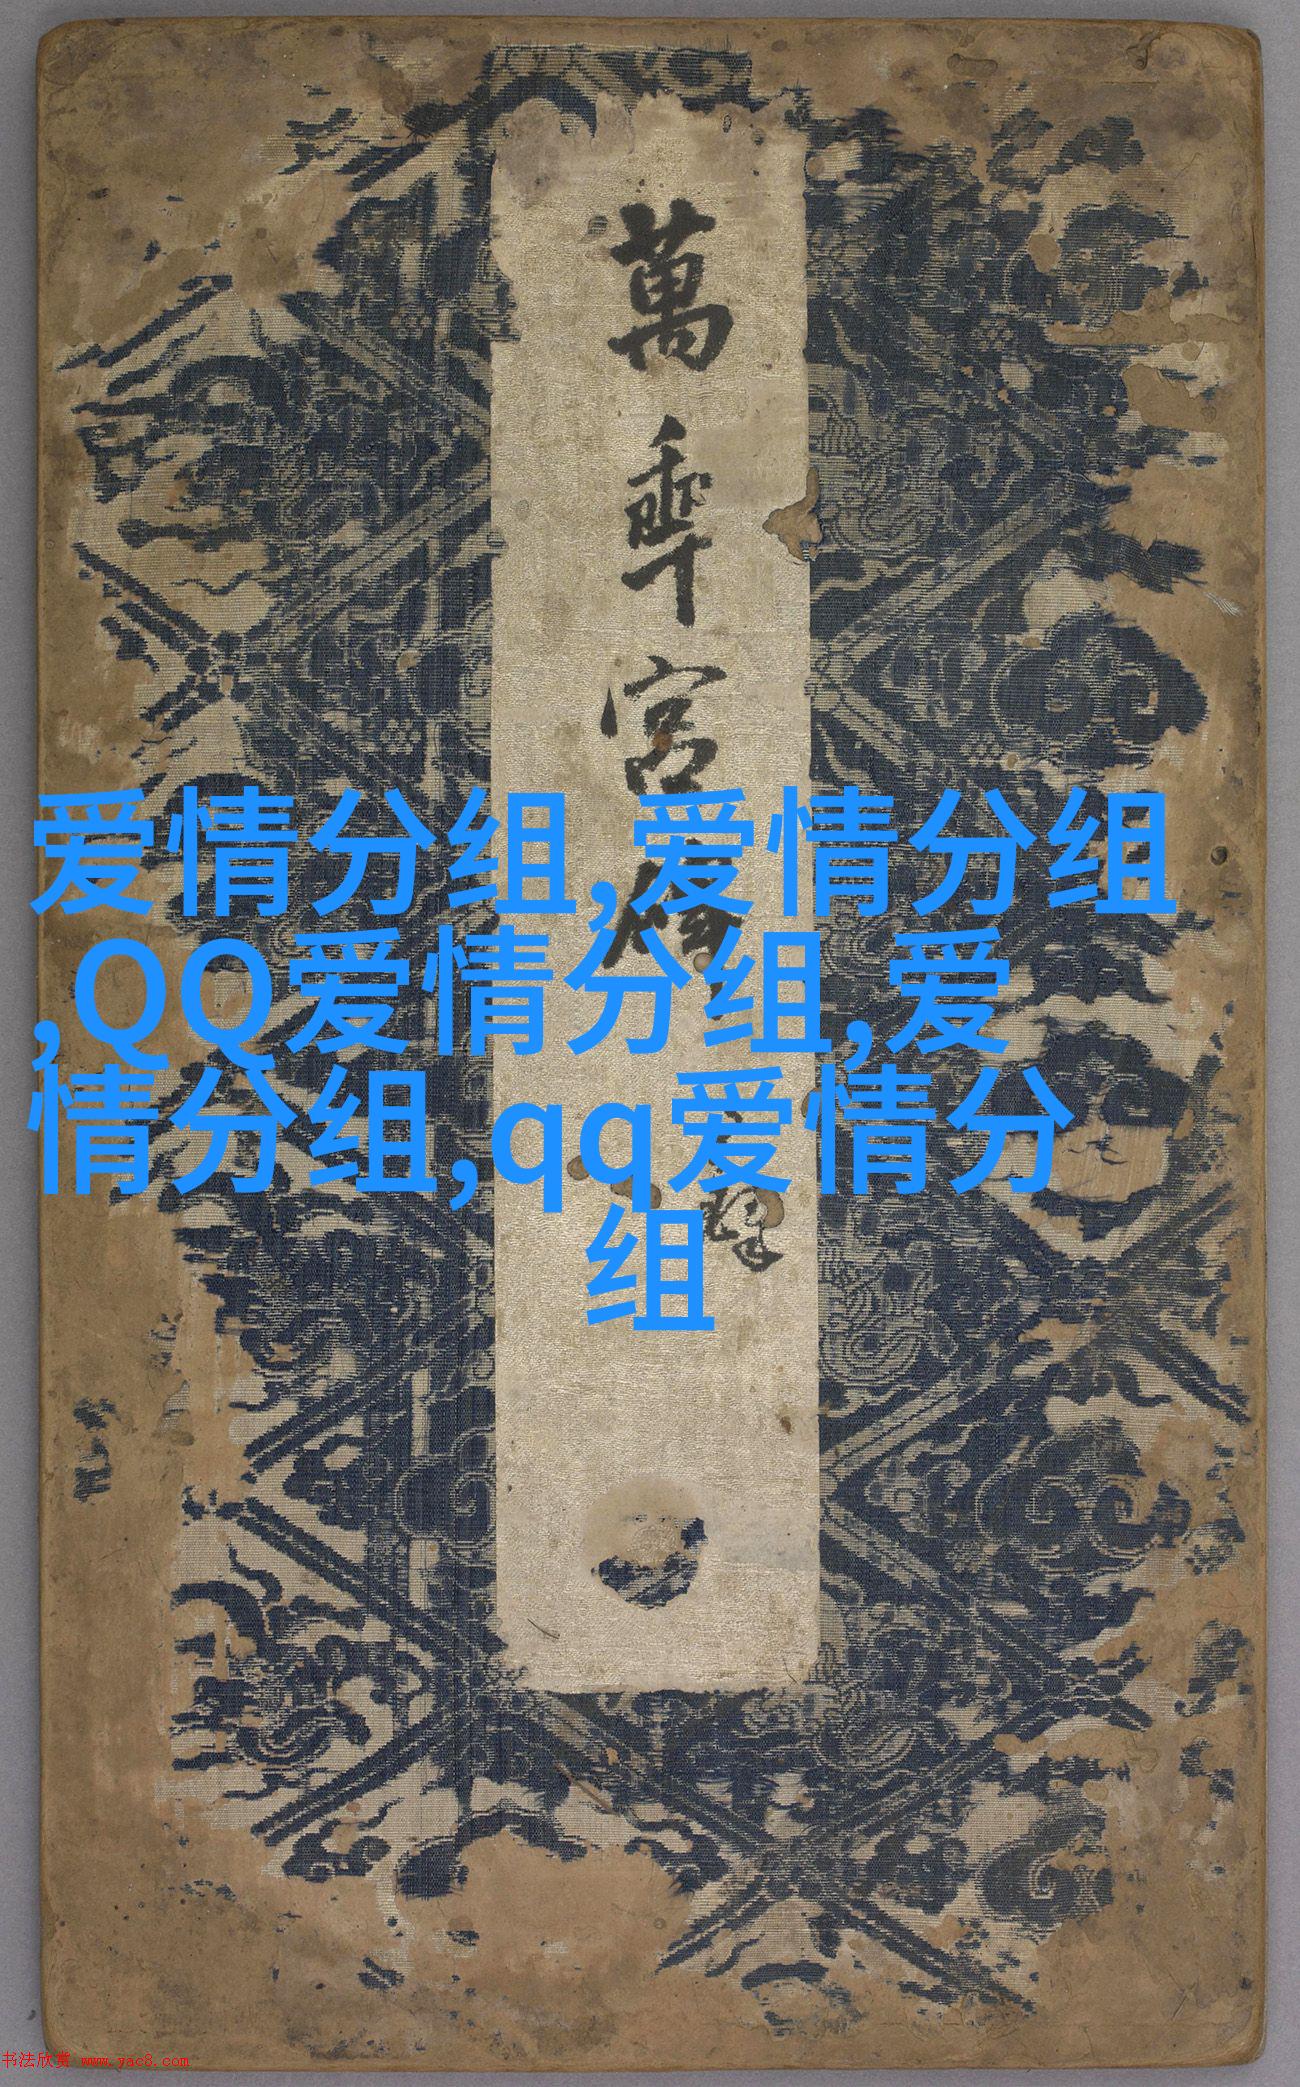 萬
宫
爱情分组,爱情分组
,QQ爱情分组,爱
情分组,qq爱情分
组
书法欣赏 www.yac8.com